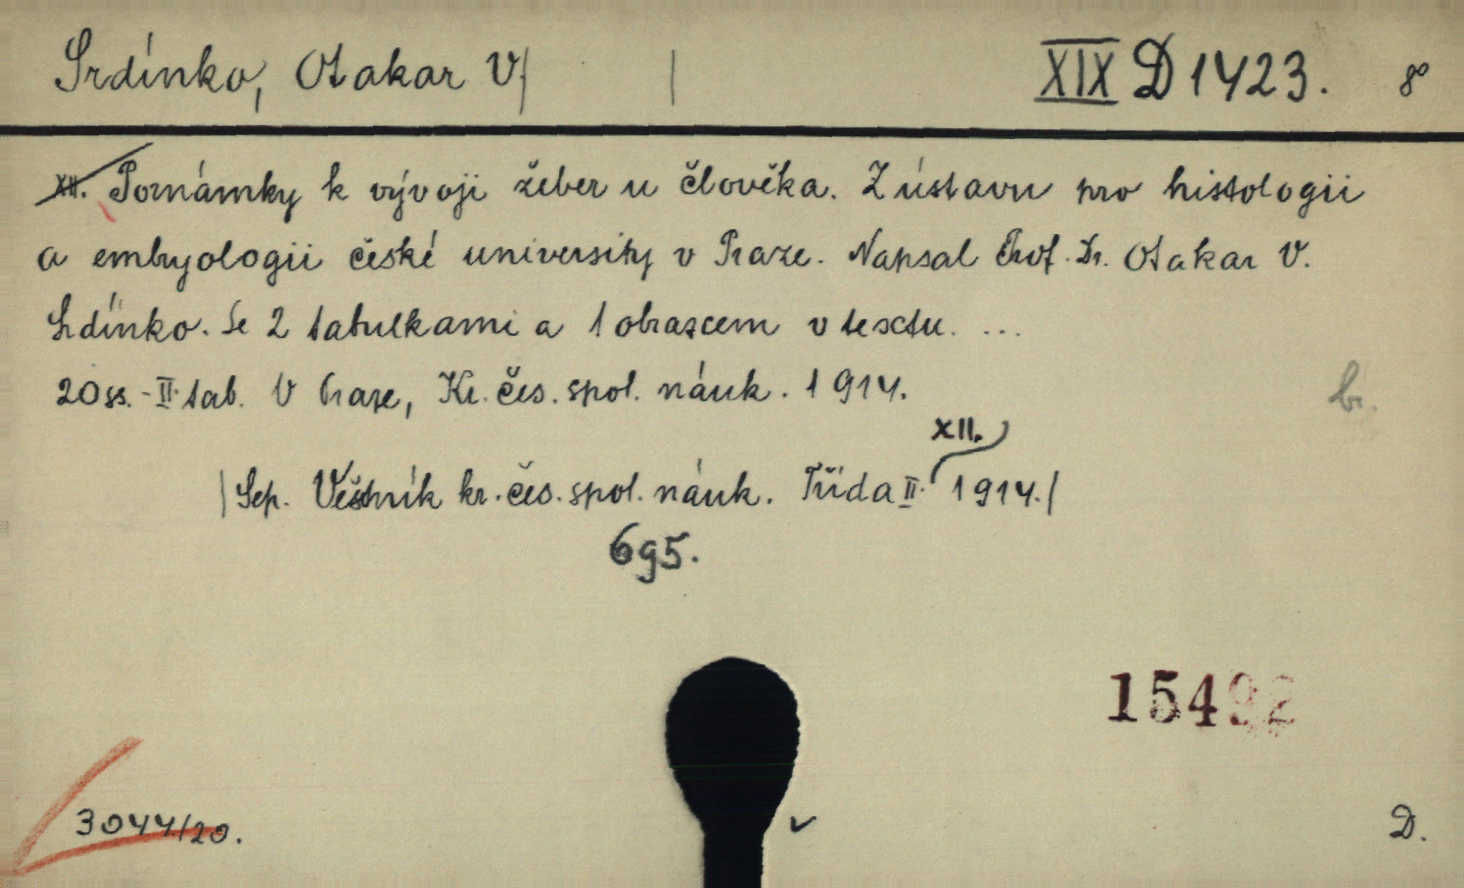 Srdínko, Otakar V| | XIX D 1423. 8°
XII. Poznámky k vývoji žeber u člověka. Z ústavu pro histologii
a embryologii české university v Praze. Napsal Prof. Dr. Otakar V.
Srdínko. Se 2 tabulkami a 1 obrazcem v textu. ...
20 ss. - II. tab. V Praze, Kr. čes. spol. náuk. 1914.
br.
XII.
|Sep. Věstník kr. čes. spol. náuk. Třída II. 1914.|
695.
15492
3044/20.
D.